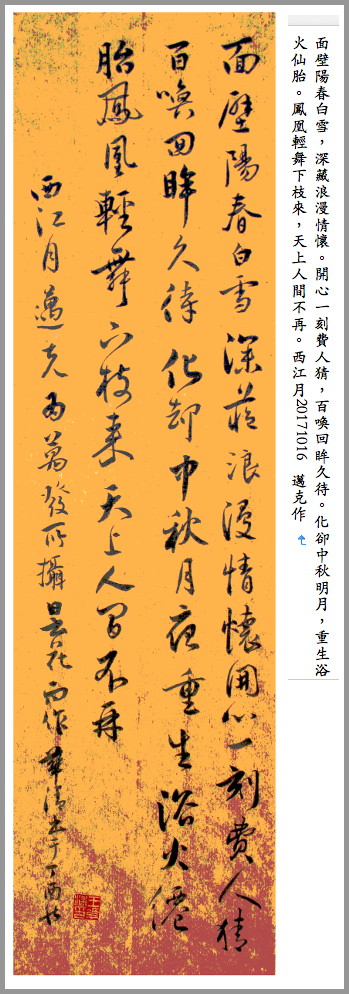 面壁陽春白雪，深藏浪漫情懷。開心一刻費人猜，百喚回眸久待。化卻中秋明月，重生浴
火仙胎。鳳凰輕舞下枝來，天上人間不再。西江月20171016 邁克作
面壁陽春白雪深藏浪漫情懷開心一刻費人猜
百喚回眸久待化卻中秋月夜重生浴火僊
胎鳳凰輕舞下枝来天上人間不再
西江月邁克為萬發所攝曇花而作華清書于丁酉秋